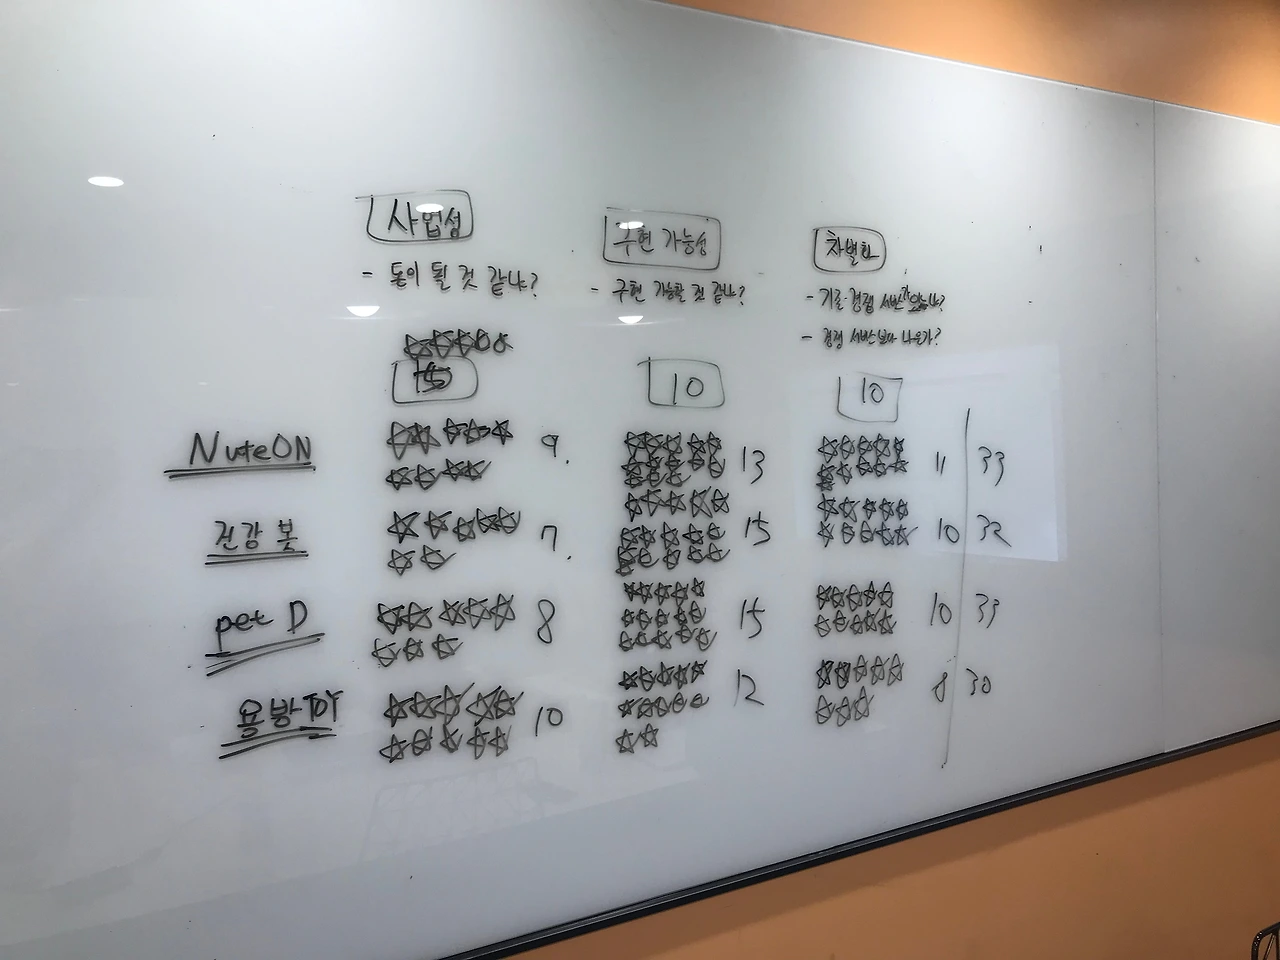 사업성
구현 가능성
차별화
- 돈이 될 것 같냐?
- 구현 가능할 것 같냐?
- 기존 경쟁 서비스
- 경쟁 서비스보다 나은가?
15
10
10
NuteON 9. 13 11 33
건강 봇 7. 15 10 32
pet D 8 15 10 33
용방TOY 10 12 8 30